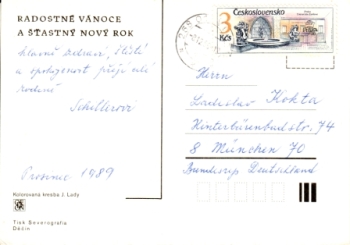 RADOSTNÉ VÁNOCE
A ŠŤASTNÝ NOVÝ ROK
hlavně zdraví, štěstí
a spokojenost přeje celé
rodině
Schillerová
Prosinec 1989
Kolorovaná kresba J. Lady
Tisk Severografia
Děčín
Československo
3 Kčs
Herrn
Ladislav Kokta
Hinterbärenbadstr. 74
8 München 70
Deutschland